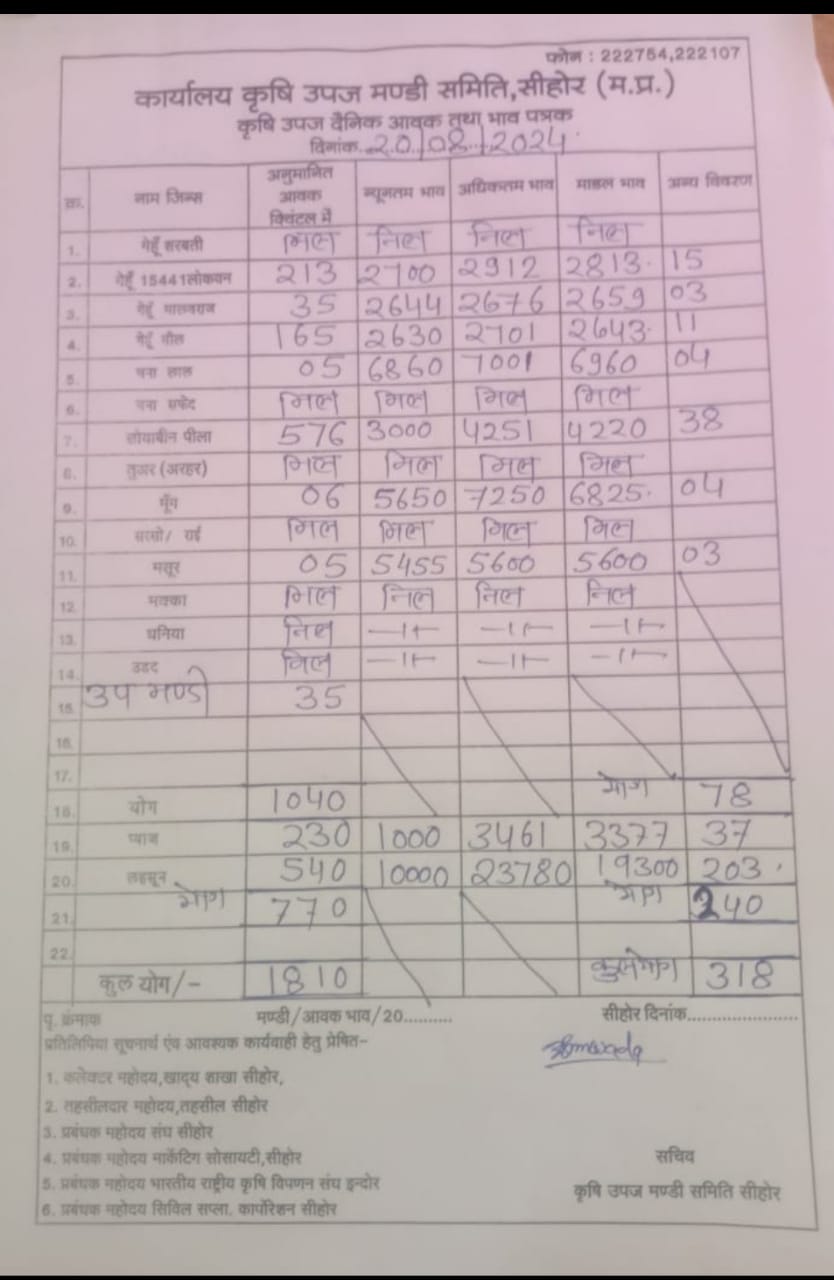 फोन : 222754,222107
कार्यालय कृषि उपज मण्डी समिति,सीहोर (म.प्र.)
कृषि उपज दैनिक आवक तथा भाव पत्रक
दिनांक 20/08/2024
क्र. नाम जिन्स अनुमानित आवक क्विंटल में न्यूनतम भाव अधिकतम भाव माडल भाव अन्य विवरण
1. गेहूँ सरबती निल निल निल निल
2. गेहूँ 15441लोकवन 213 2700 2912 2813 15
3. गेहूँ मालवराज 35 2644 2676 2659 03
4. गेहूँ मील 165 2630 2701 2643 11
5. चना लाल 05 6860 7001 6960 04
6. चना सफेद निल निल निल निल
7. सोयाबीन पीला 576 3000 4251 4220 38
8. तुअर (अरहर) निल निल निल निल
9. मूँग 06 5650 7250 6825 04
10. सरसो/ राई निल निल निल निल
11. मसूर 05 5455 5600 5600 03
12. मक्का निल निल निल निल
13. धनिया निल —11— —11— —11—
14. उडद निल —11— —11— —11—
15. उप मण्डी 35
16.
17.
18. योग 1040 योग 78
19. प्याज 230 1000 3461 3377 37
20. लहसून 540 10000 23780 19300 203
21. योग 770 योग 240
22.
कुल योग/- 1810 कुल योग 318
पृ. क्रंमाक मण्डी/आवक भाव/20.......... सीहोर दिनांक......................
प्रतिलिपिया सूचनार्थ एंव आवश्यक कार्यवाही हेतु प्रेषित–
1. कलेक्टर महोदय,खाद्य शाखा सीहोर,
2. तहसीलदार महोदय,तहसील सीहोर
3. प्रबंधक महोदय संघ सीहोर
4. प्रबंधक महोदय मार्केटिग सोसायटी,सीहोर
5. प्रबंधक महोदय भारतीय राष्ट्रीय कृषि विपणन संघ इन्दोर
6. प्रबंधक महोदय सिविल सप्ला. कार्पोरेशन सीहोर
सचिव
कृषि उपज मण्डी समिति सीहोर